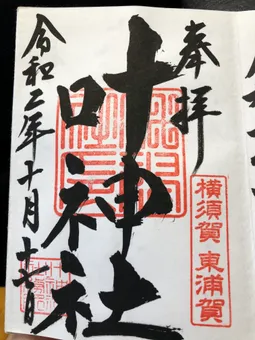 奉拝
横須賀 東浦賀
叶神社
令和二年十月十一日